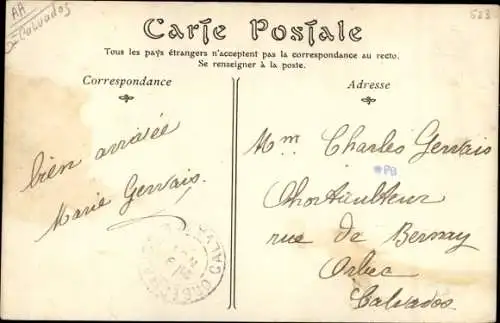 AA
Calvados
523
Carte Postale
Tous les pays étrangers n'acceptent pas la correspondance au recto.
Se renseigner à la poste.
Correspondance
bien arrivée
Marie Gervais.
Adresse
Mme Charles Gervais
*PB
Ohorticulteur
rue de Bernay
Orbec
Calvados
CALVA
ORBEC